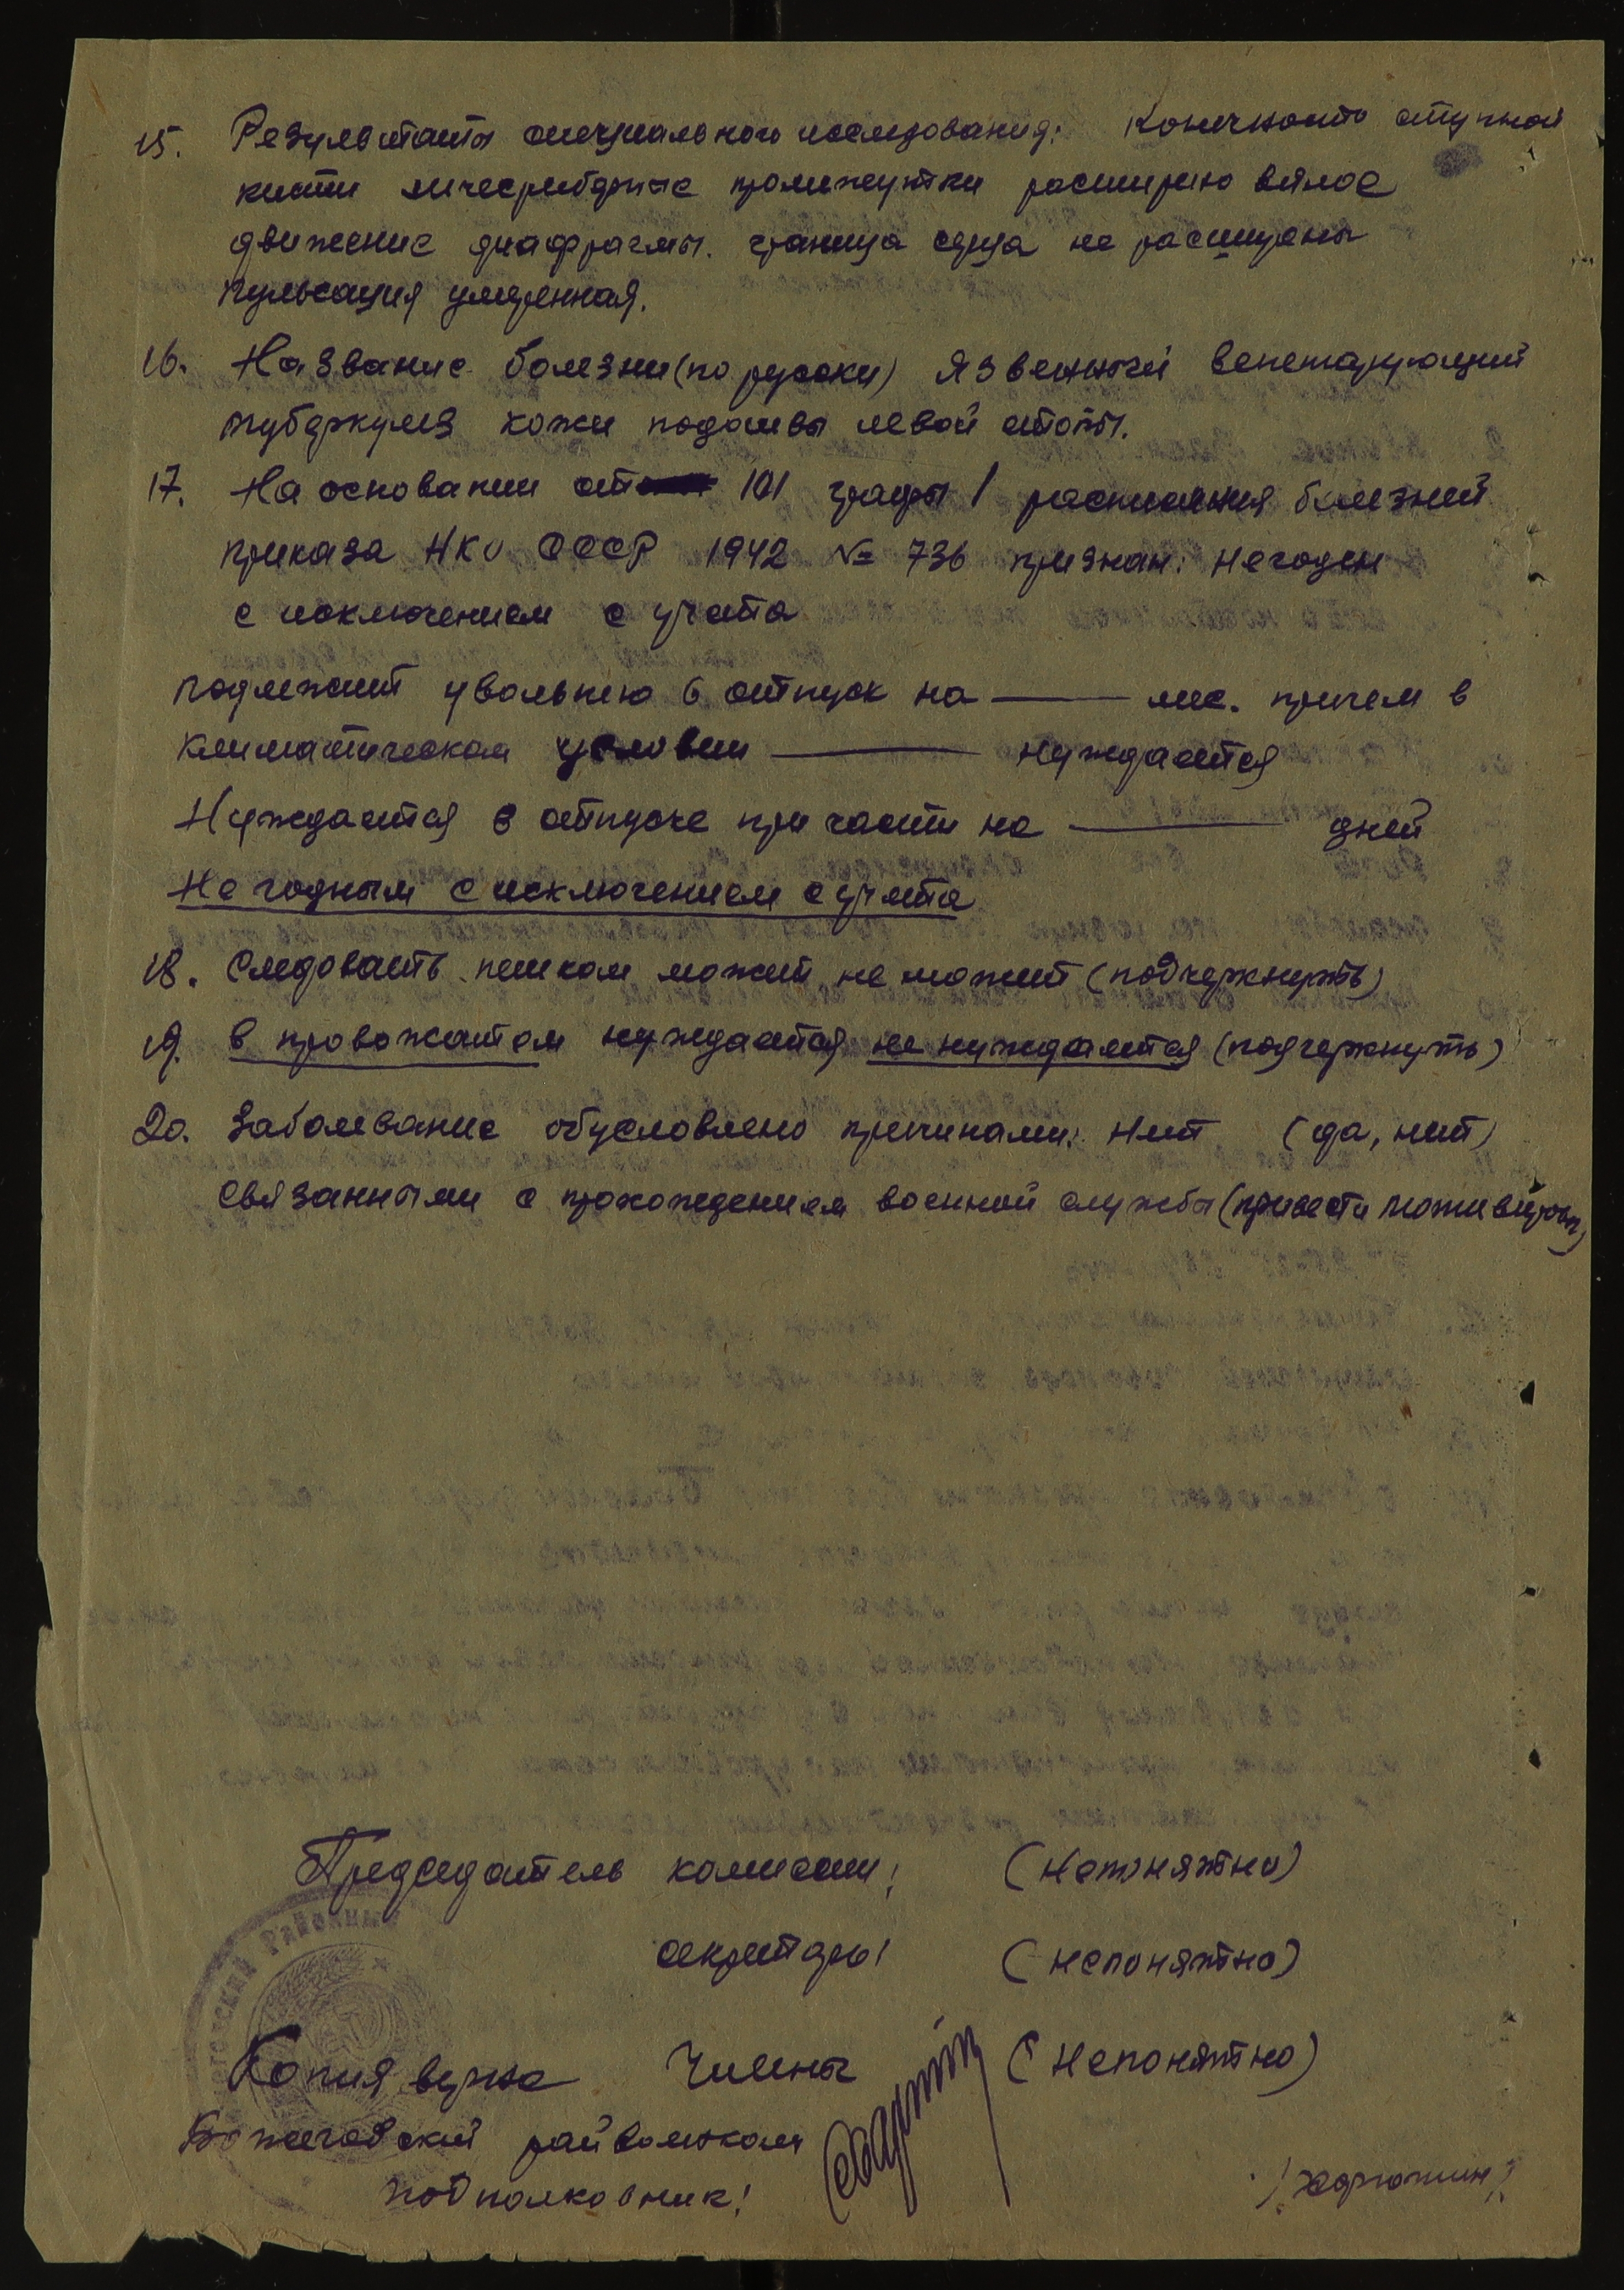 15. Результаты специального исследования: Конечность ступной
кисти расширено вялое
движение диафрагмы. граница серца не расширены
пульсация умеренная.
16. Название болезни (по русски) Язвенный вегетарующий
туберкулез кожи подошвы левой стопы.
17. На основании ст 101 графы 1 расписания болезней
приказа НКО СССР 1942 № 736 признан: Негоден
с исключением с учета
подлежит увольнею в отпуск на —— мес. причем в
климатическом условии —— нуждается
Нуждается в отпуске при части на —— дней
Не годным с исключением с учета
18. Следовать пешком может, не может (подчеркнуть)
19. в провожатом нуждается не нуждается (подчеркнуть)
20. Заболевание обусловлено причинами: нет (да, нет)
связанными с прохождением военной службы (привести
Председатель комиссии: (Непонятно)
секретарь (непонятно)
Районный
Копия верна Члены (Непонятно)
райвоенком
подполковник!